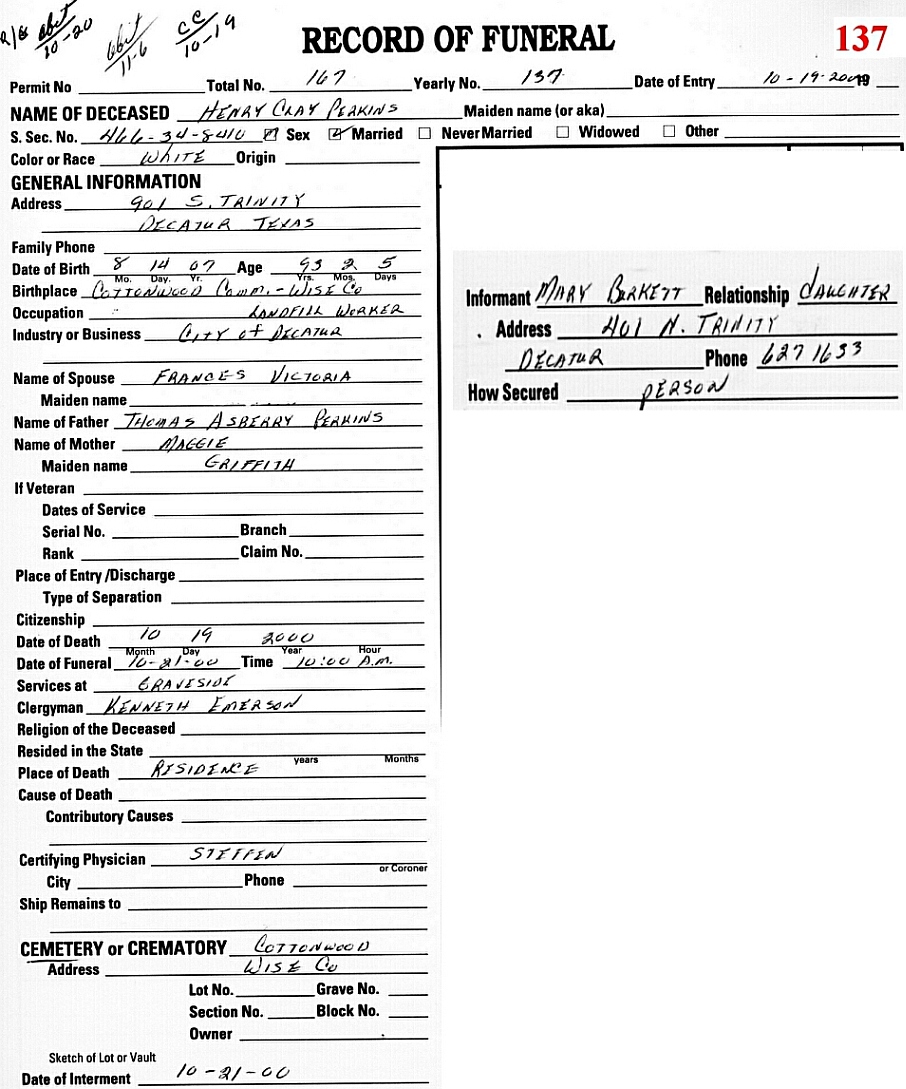 R/S obit 10-20
obit 11-6
CC 10-19
RECORD OF FUNERAL
137
Permit No Total No. 167 Yearly No. 137 Date of Entry 10-19-2000 19
NAME OF DECEASED HENRY CLAY PERKINS Maiden name (or aka)
S. Sec. No. 466-34-8410 ☑ Sex ☑ Married ☐ Never Married ☐ Widowed ☐ Other
Color or Race WHITE Origin
GENERAL INFORMATION
Address 901 S. TRINITY
DECATUR TEXAS
Family Phone
Date of Birth 8 14 07 Age 93 2 5
Mo. Day. Yr. Yrs. Mos. Days
Birthplace COTTONWOOD COMM. - WISE CO
Occupation LANDFILL WORKER
Industry or Business CITY of DECATUR
Name of Spouse FRANCES VICTORIA
Maiden name
Name of Father THOMAS ASBERRY PERKINS
Name of Mother MAGGIE
Maiden name GRIFFITH
If Veteran
Dates of Service
Serial No. Branch
Rank Claim No.
Place of Entry /Discharge
Type of Separation
Citizenship
Date of Death 10 19 2000
Month Day Year Hour
Date of Funeral 10-21-00 Time 10:00 A.M.
Services at GRAVESIDE
Clergyman KENNETH EMERSON
Religion of the Deceased
Resided in the State
years Months
Place of Death RESIDENCE
Cause of Death
Contributory Causes
Certifying Physician STEFFEN
or Coroner
City Phone
Ship Remains to
CEMETERY or CREMATORY COTTONWOOD
Address WISE CO
Lot No. Grave No.
Section No. Block No.
Owner
Sketch of Lot or Vault
Date of Interment 10-21-00
Informant MARY BIRKETT Relationship DAUGHTER
Address 401 N. TRINITY
DECATUR Phone 627 1633
How Secured PERSON